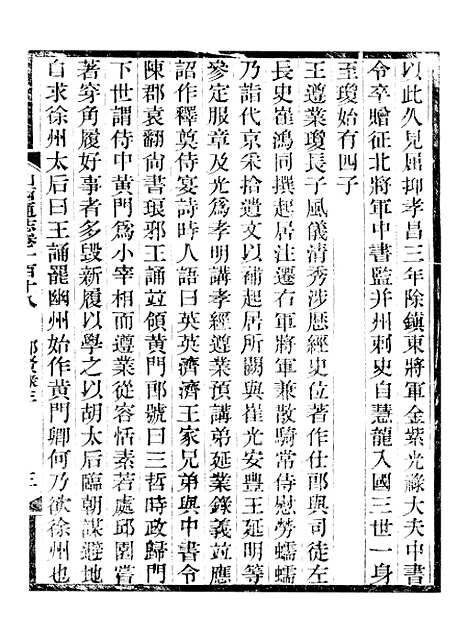 以此久見屈抑孝昌三年除鎭東將軍金紫光祿大夫中書
令卒贈征北將軍中書監并州刺史自慧龍入國三世一身
至瓊始有四子
王遵業瓊長子風儀清秀涉歷經史位著作仕郎與司徒左
長史崔鴻同撰起居注遷右軍將軍兼散騎常侍慰勞蠕蠕
乃詣代京采拾遺文以補起居所闕與崔光安豐王延明等
參定服章及光爲孝明講孝經遵業預講弟延業錄義竝應
詔作釋奠侍宴詩時人語曰英英濟濟王家兄弟與中書令
陳郡袁翻尙書琅邪王誦竝領黃門郎號曰三哲時政歸門
下世謂侍中黃門爲小宰相而遵業從容恬素若處邱園嘗
著穿角履好事者多毀新履以學之以胡太后臨朝謀避地
自求徐州太后曰王誦罷幽州始作黃門卿何乃欲徐州也
山西通志卷一百十八 鄉賢錄三 三